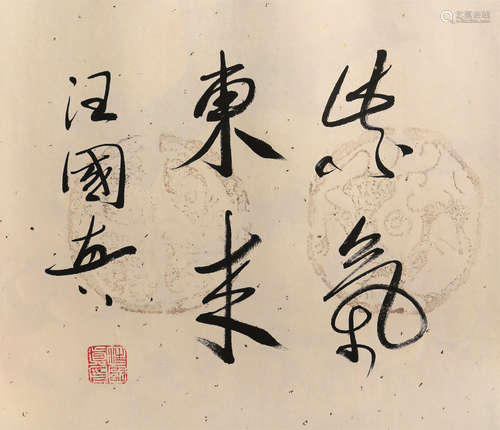 紫氣
東来
汪國真